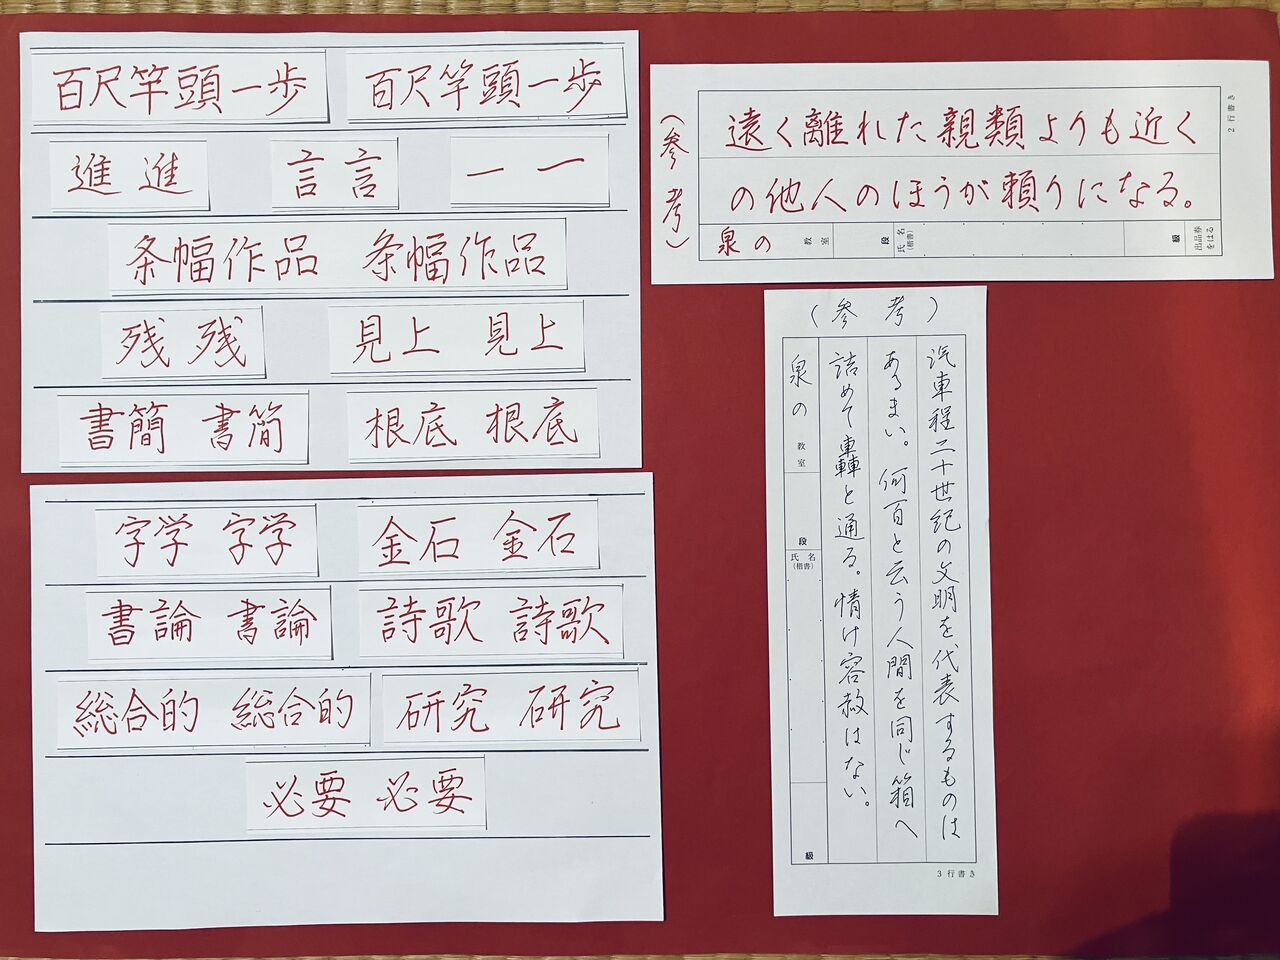 百尺竿頭一歩 百尺竿頭一歩
進 進 言 言 一 一
条幅作品 条幅作品
残 残 見上 見上
書簡 書簡 根底 根底
字学 字学 金石 金石
書論 書論 詩歌 詩歌
総合的 総合的 研究 研究
必要 必要
(参考)
遠く離れた親類よりも近く
の他人のほうが頼りになる。
泉の 教室 段 氏名(楷書) 級 出品券をはる
2行書き
(参考)
汽車程二十世紀の文明を代表するものは
あるまい。何百と云う人間を同じ箱へ
詰めて轟と通る。情け容赦はない。
泉の 教室 段 氏名(楷書) 級
3行書き